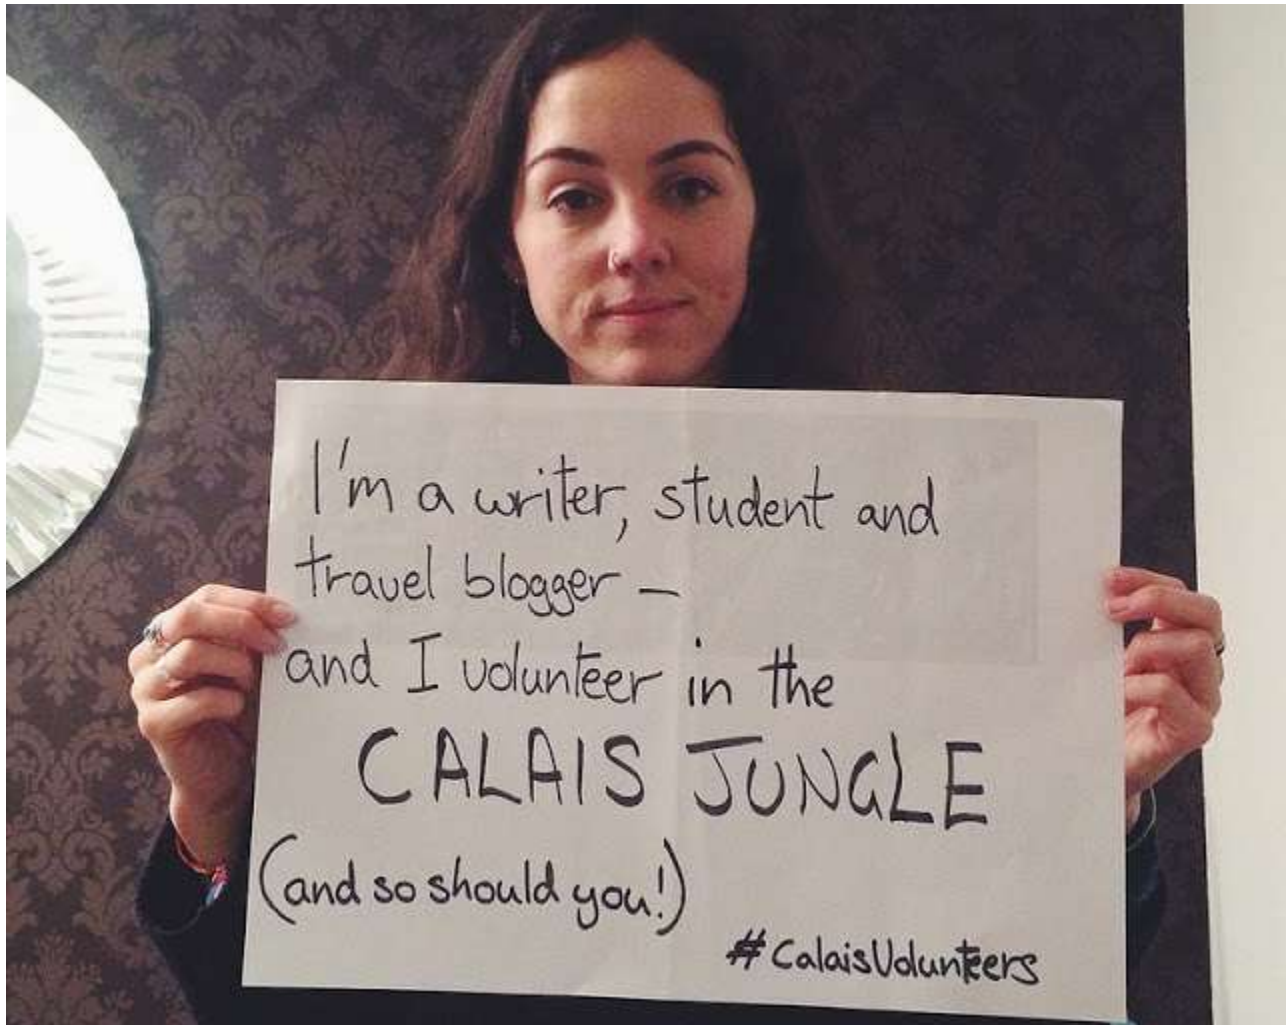 I'm a writer, student and
travel blogger –
and I volunteer in the
CALAIS JUNGLE
(and so should you!)
#CalaisVolunteers